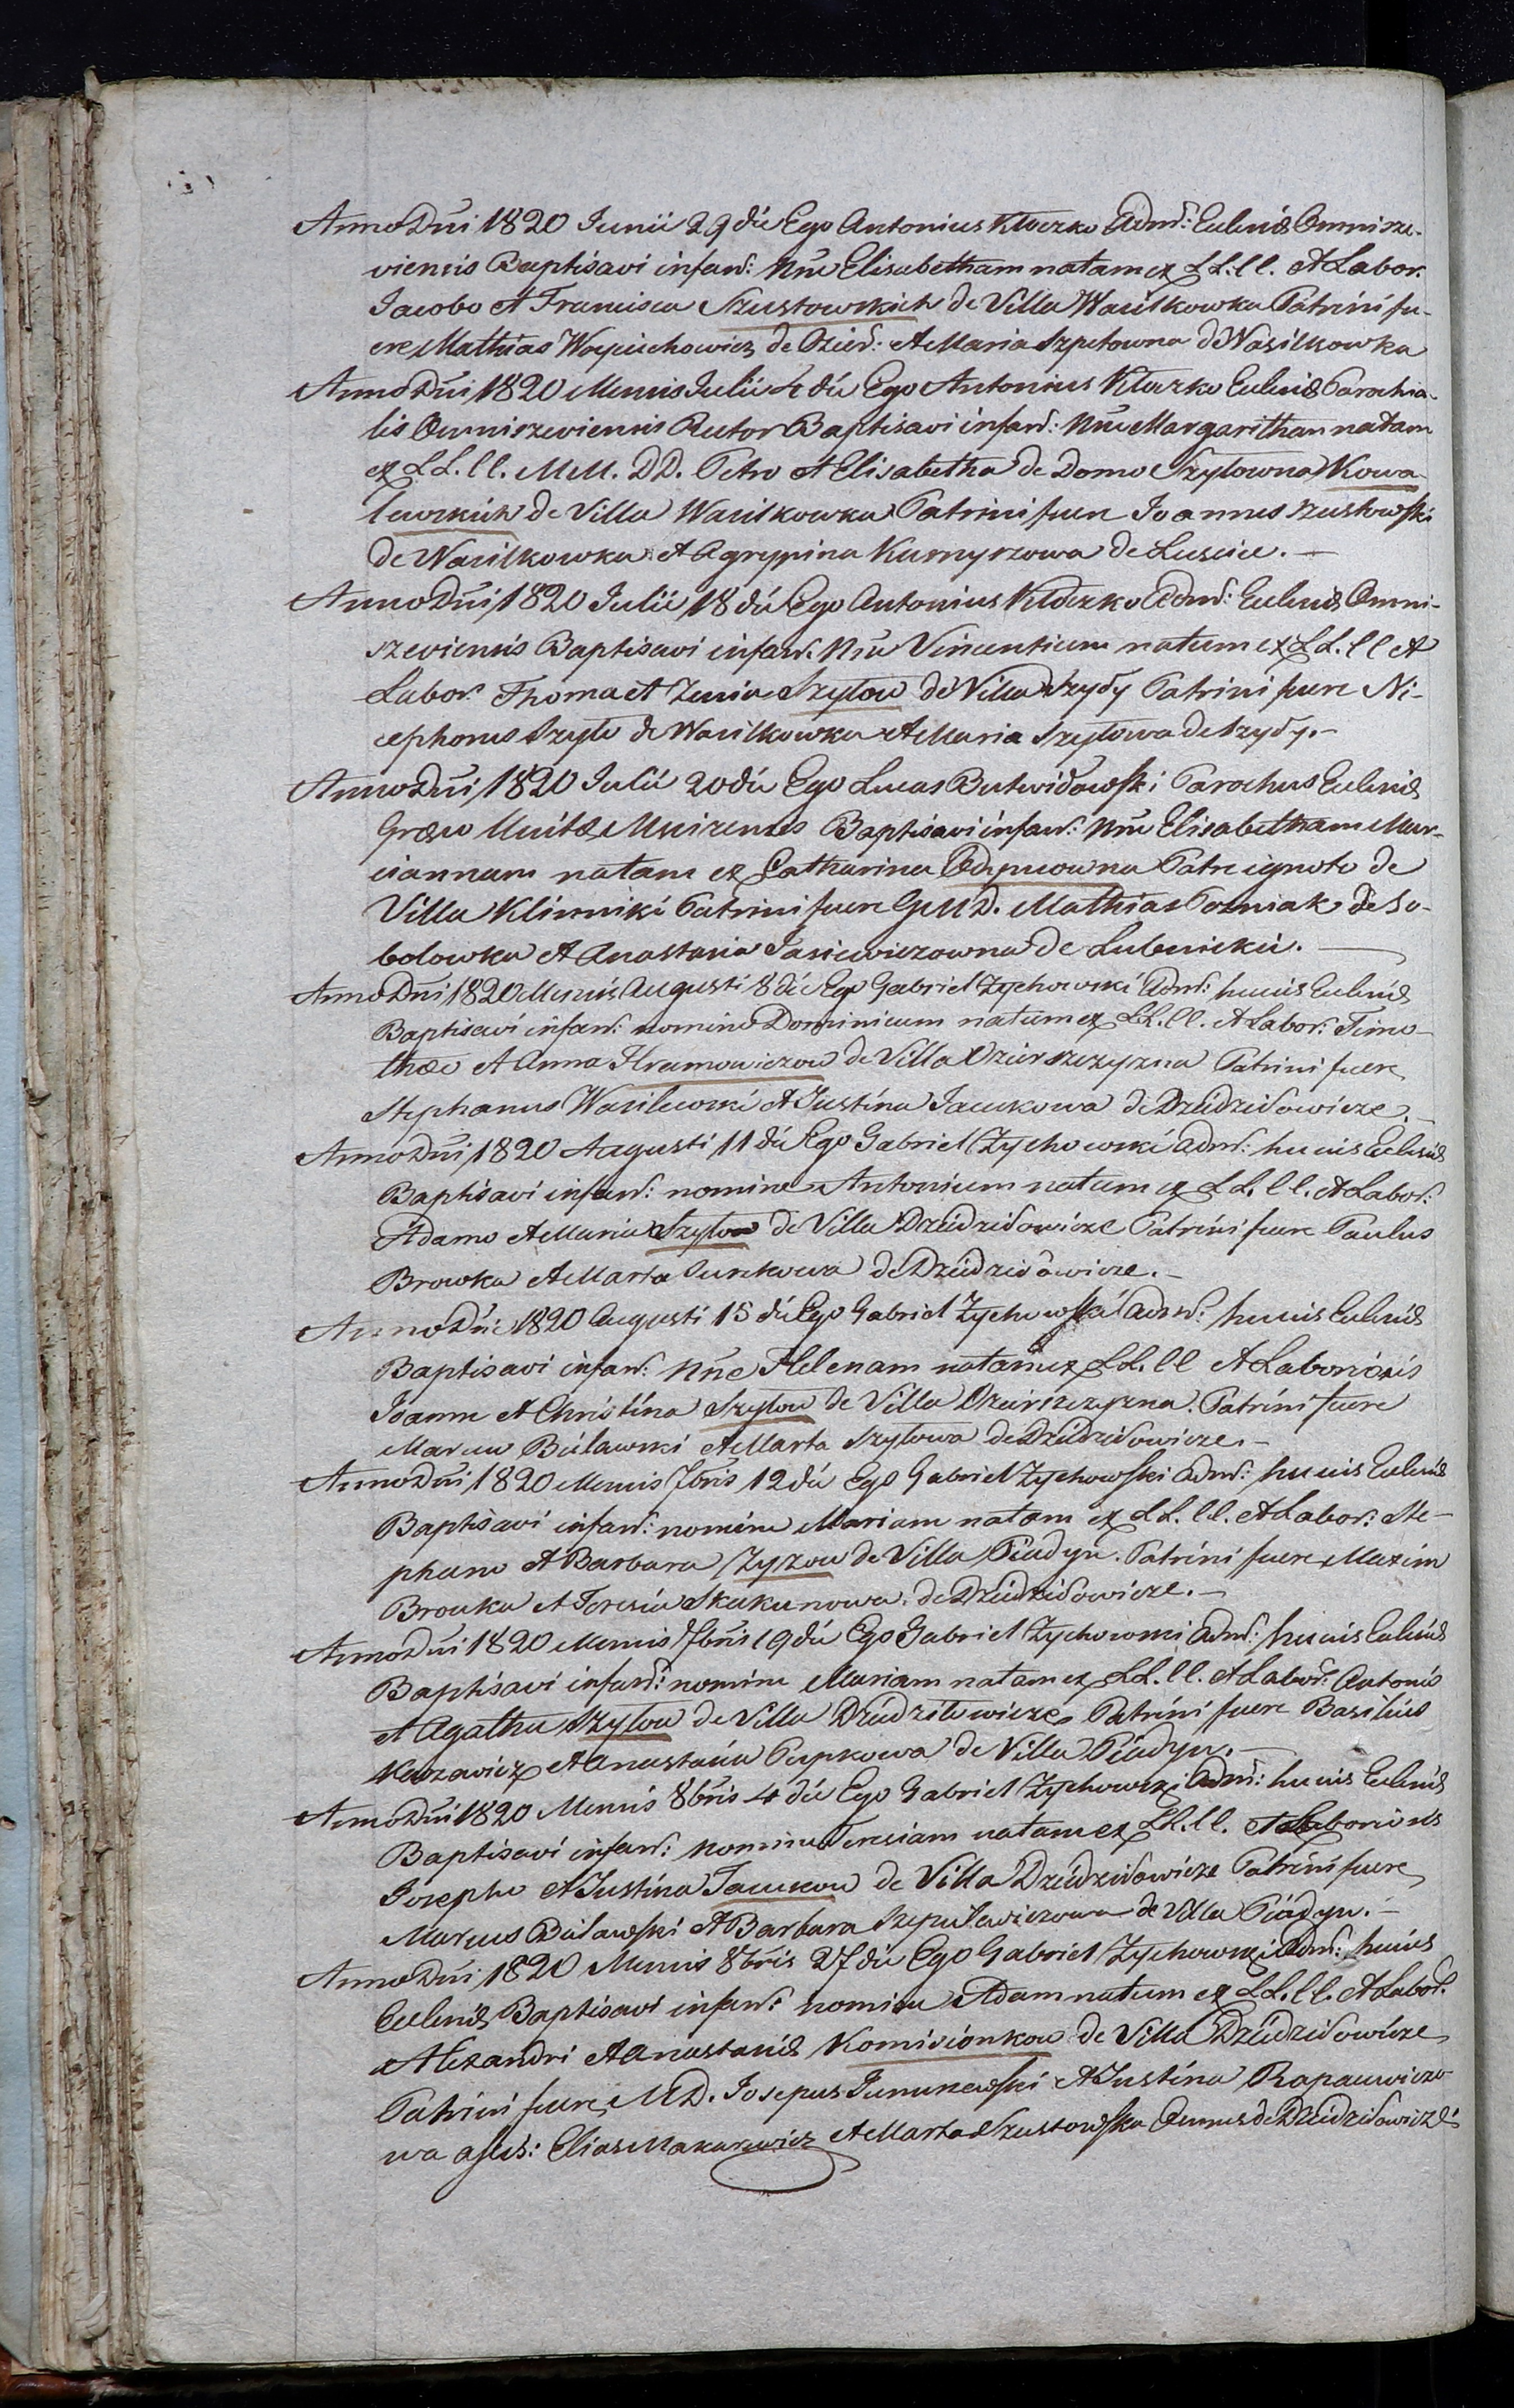 Anno Dni 1820 Junii 29 die Ego Antonius Kłoczko Adm: Ecclesiæ Omnisze-
viensis Baptisavi infant: Nne Elisabetham natam ex LL. ll. et Labor.
Jacobo et Francisca Szustowskich de Villa Wasilkowka Patrini fu-
ere Mathias Woyciechowicz de Dzied: et Maria Szyłowna de Wasilkowka
Anno Dni 1820 Mensis Julii 4 die Ego Antonius Kłoczko Ecclesiæ Parochia-
lis Omniszeviensis Rector Baptisavi infant: Nne Margaritham natam
ex LL. ll. MM. DD. Petro et Elisabetha de Domo Szyłowna Kowa-
lewskich de Villa Wasilkowka Patrini fuere Joannes Szustowski
de Wasilkowka et Agrypina Kurnyszowa de Luscice.
Anno Dni 1820 Julii 18 die Ego Antonius Kłoczko Adm: Ecclesiæ Omni-
szeviensis Baptisavi infant. Nne Vincentium natum ex LL. ll et
Labor. Thoma et Xenia Szyłow de Villa Szydy Patrini fuere Ni-
cephorus Szyło de Wasilkowka et Maria Szyłowa de Szydy.
Anno Dni 1820 Julii 20 die Ego Lucas Butwidowski Parochus Ecclesiæ
Græco Unitæ Baptisavi infant: Nne Elisabetham Mar-
ciannam natam ex Catharina Adymowna Patre ignoto de
Villa Klinniki Patrini fuere GMD. Mathias Pozniak de So-
bolowka et Anastasia Jasiewiczowna de Lubenicki.
Anno Dni 1820 Mensis Augusti 8 die Ego Gabriel Zychowski Adm: huius Ecclesiæ
Baptisavi infant: nomine Dominicum natum ex LL. ll. et Labor: Timo-
thæo et Anna Hramowiczow de Villa Dzierszczyzna Patrini fuere
Stephanus Wasilewski et Justina Jacukowa de Dziedziłowicze.
Anno Dni 1820 Augusti 11 die Ego Gabriel Zychowski Adm: huius Ecclesiæ
Baptisavi infant: nomine Antonium natum ex LL. ll. et Labor:
Adamo et Maria Szyłow de Villa Dziedziłowicze Patrini fuere Paulus
Browka et Marta de Dziedziłowicze.
Anno Dni 1820 Augusti 15 die Ego Gabriel Zychowski Adm: huius Ecclesiæ
Baptisavi infant: Nne Helenam natam ex LL. ll et Laboriosis
Joanne et Christina Szyłow de Villa Dzierszczyzna. Patrini fuere
Marcus Buławski et Marta Szyłowa de Dziedziłowicze.
Anno Dni 1820 Mensis 7bris 12 die Ego Gabriel Zychowski Adm: huius Ecclesiæ
Baptisavi infant: nomine Mariam natam ex LL. ll. et Labor: Ste-
phano et Barbara Zyzow de Villa Piadyn. Patrini fuere Maxim
Brouka et Teresia Skakunowa de Dziedziłowicze.
Anno Dni 1820 Mensis 7bris 19 die Ego Gabriel Zychowski Adm: huius Ecclesiæ
Baptisavi infant: nomine Mariam natam ex LL. ll. et Labor: Antonio
et Agatha Szyłow de Villa Dziedziłowicze Patrini fuere Basilius
Kazawicz et Anastasia Pupkowa de Villa Piadyn.
Anno Dni 1820 Mensis 8bris 4 die Ego Gabriel Zychowski Adm: huius Ecclesiæ
Baptisavi infant: nomine Teresiam natam ex LL. ll. et Laboriosis
Josepho et Justina Jacukow de Villa Dziedziłowicze Patrini fuere
Marcus Buławski et Barbara Szypulewiczowa de Villa Piadyn.
Anno Dni 1820 Mensis 8bris 27 die Ego Gabriel Zychowski Adm: huius
Ecclesiæ Baptisavi infant: nomine Adam natum ex LL. ll. et Labor.
Alexandri et Anastasiæ Komisionkow de Villa Dziedziłowicze
Patrini fuere MD. Josepus et Justina Rapacewiczo-
wa assis: Elias Makarewicz et Marta Szustowska Omnes de Dziedziłowicze